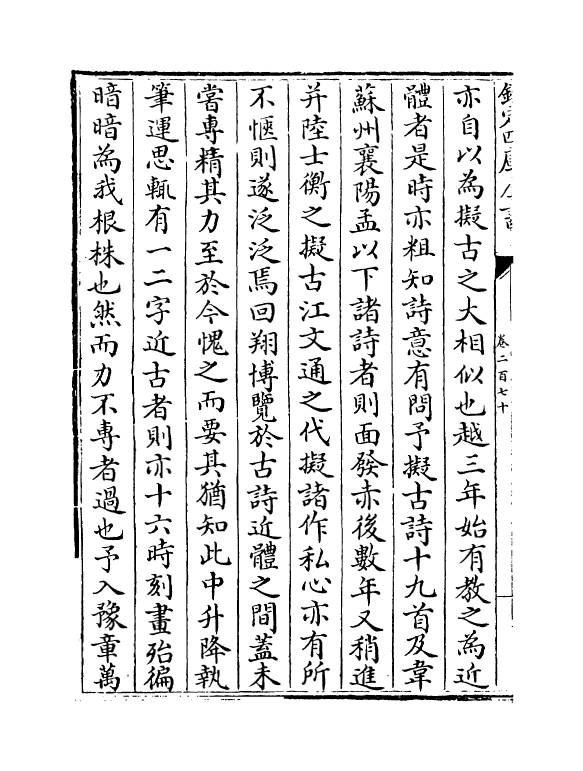 欽定四庫全書
卷二百七十
亦自以為擬古之大相似也越三年始有教之為近
體者是時亦粗知詩意有問予擬古詩十九首及韋
蘇州襄陽孟以下諸詩者則面發赤後數年又稍進
并陸士衡之擬古江文通之代擬諸作私心亦有所
不愜則遂泛泛焉回翔博覽於古詩近體之間蓋未
嘗專精其力至於今愧之而要其猶知此中升降執
筆運思輒有一二字近古者則亦十六時刻畫殆徧
暗暗為我根株也然而力不專者過也予入豫章萬